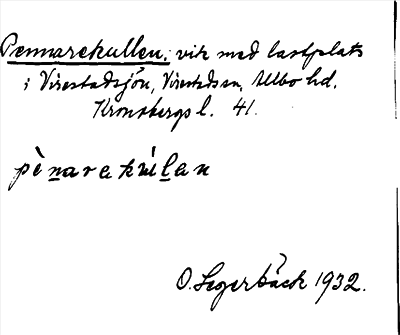 Pennarekullen, vik med lastplats
i Virestadsjön, Virestads sn, Allbo hd,
Kronobergs l. 41.
pènarakúlan
O. Segerbäck 1932.